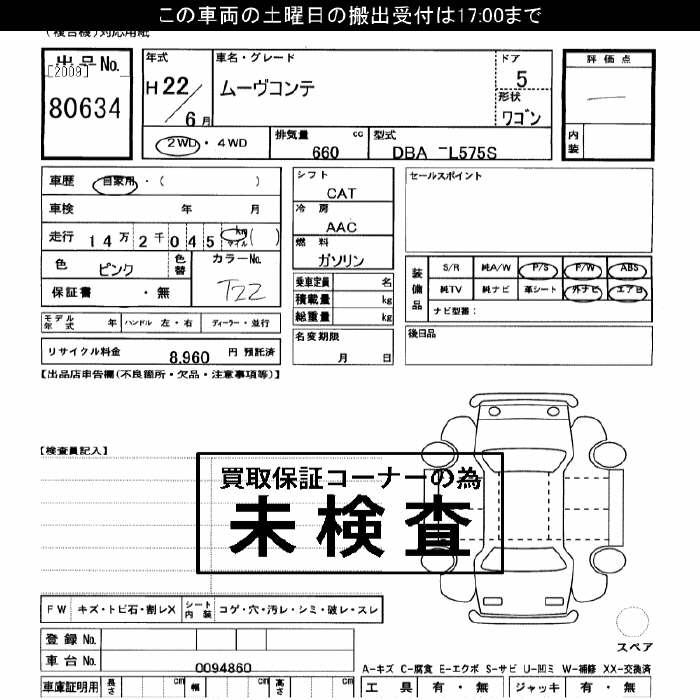 この車両の土曜日の搬出受付は17:00まで
(複合機)対応用紙
出品No.
[2009]
80634
年式
H 22/6月
車名・グレード
ムーヴコンテ
ドア
5
形状
ワゴン
評価点
内装
2WD・4WD
排気量 cc
660
型式
DBA -L575S
車歴 自家用・( )
車検 年 月
走行 14万2千045 km マイル ( )
色 ピンク
色替
カラーNo.
T22
保証書 ・無
シフト
CAT
冷房
AAC
燃料
ガソリン
乗車定員 名
積載量 kg
総重量 kg
名変期限
月 日
セールスポイント
装備品
S/R 純A/W P/S P/W ABS
純TV 純ナビ 革シート 外ナビ エアB
ナビ型番:
後日品
モデル年式 年 ハンドル 左・右 ディーラー・並行
リサイクル料金 8,960 円 預託済
【出品店申告欄(不良箇所・欠品・注意事項等)】
【検査員記入】
買取保証コーナーの為
未検査
FW キズ・トビ石・割レX シート内装 コゲ・穴・汚レ・シミ・破レ・スレ
登録No.
車台No. 0094860
スペア
A-キズ C-腐食 E-エクボ S-サビ U-凹ミ W-補修 XX-交換済
車庫証明用 長さ cm 幅 cm 高さ cm
工具 有・無 ジャッキ 有・無